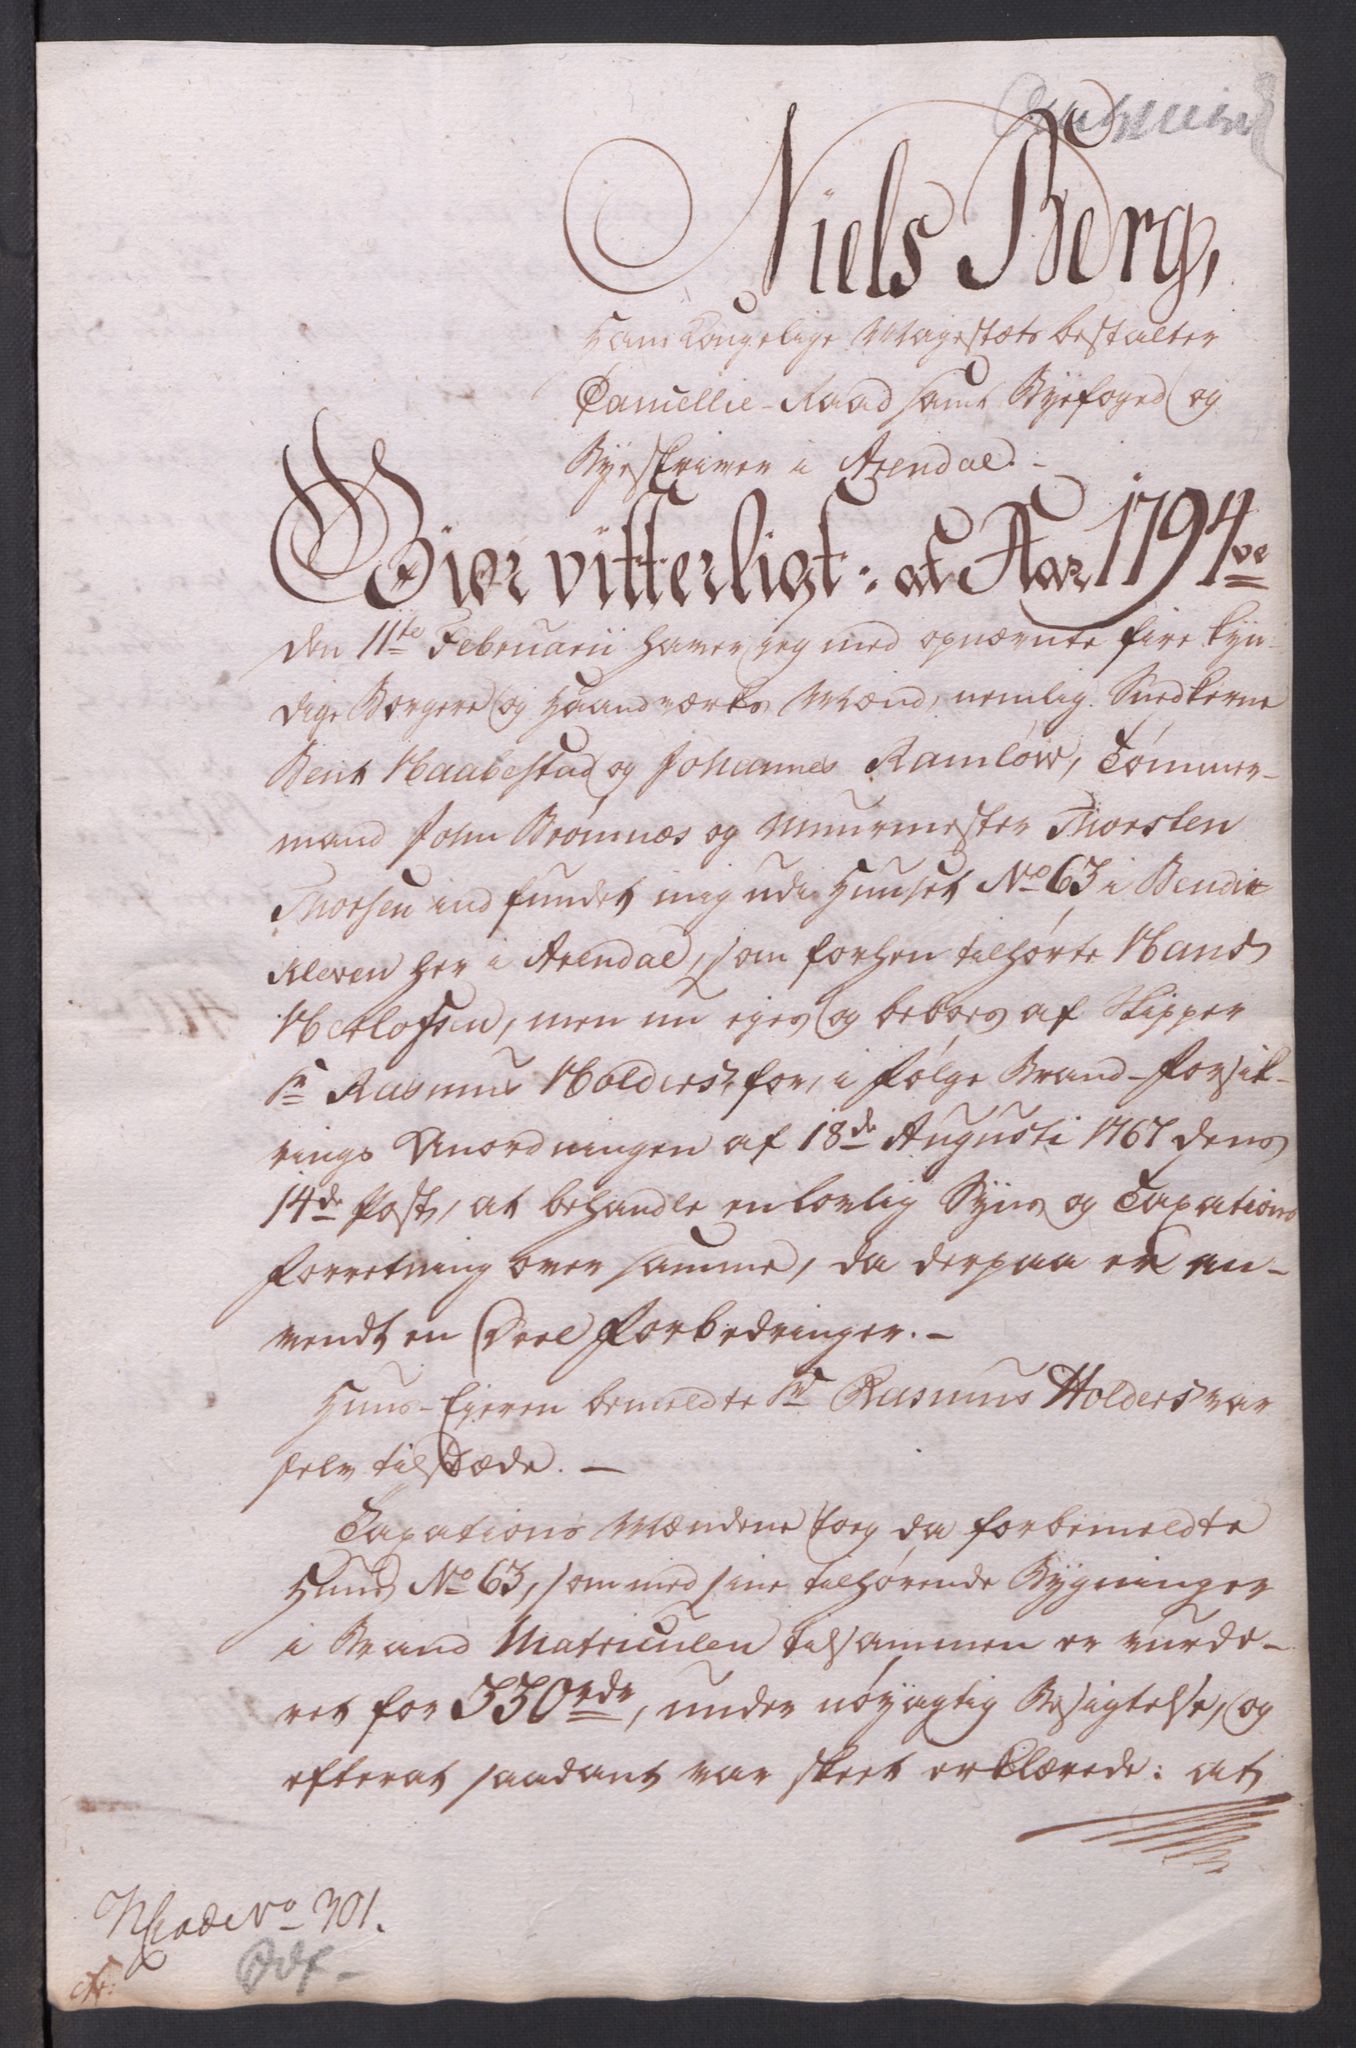 Niels Berg,
Hans Kongelige Mayestæts bestalter
Cancellie-Raad samt Byefoged og
Byeskriver i Arendal. -
Giør vitterligt: at Aar 1794ve
den 11te Februarii haver jeg med opnævnte fire kyn-
dige Borgere og Haandværks Mænd, nemlig Snedkerne
Bent Haabestad og Johannes Ramlöw, Tömmer-
mand John Brömnæs og Muurmester Thorsten
Thorsen indfundet mig udi Huuset No 63 i Bendix
Kleven her i Arendal, som forhen tilhørte Hans
Herlofsen, men nu eyes og beboes af Skipper
Sr Rasmus Holders, for, i Følge Brand-Forsik-
rings Anordningen af 18de Augusti 1767 dens
14de Post, at behandle en lovlig Syns og Taxations
Forretning over samme, da derpaa er an-
vendt en Deel Forbedringer. -
Huus-Eieren bemeldte Sr Rasmus Holders var
selv tilstæde. -
Taxations Mændene tog da forbemeldte
Huus No 63, som med sine tilhørende Bygninger
i Brand Matriculen tilsammen er vurde-
ret for 330rdr, under nøyagtig Besigtelse, og
efterat saadant var skeet erklærede: at
No 301.